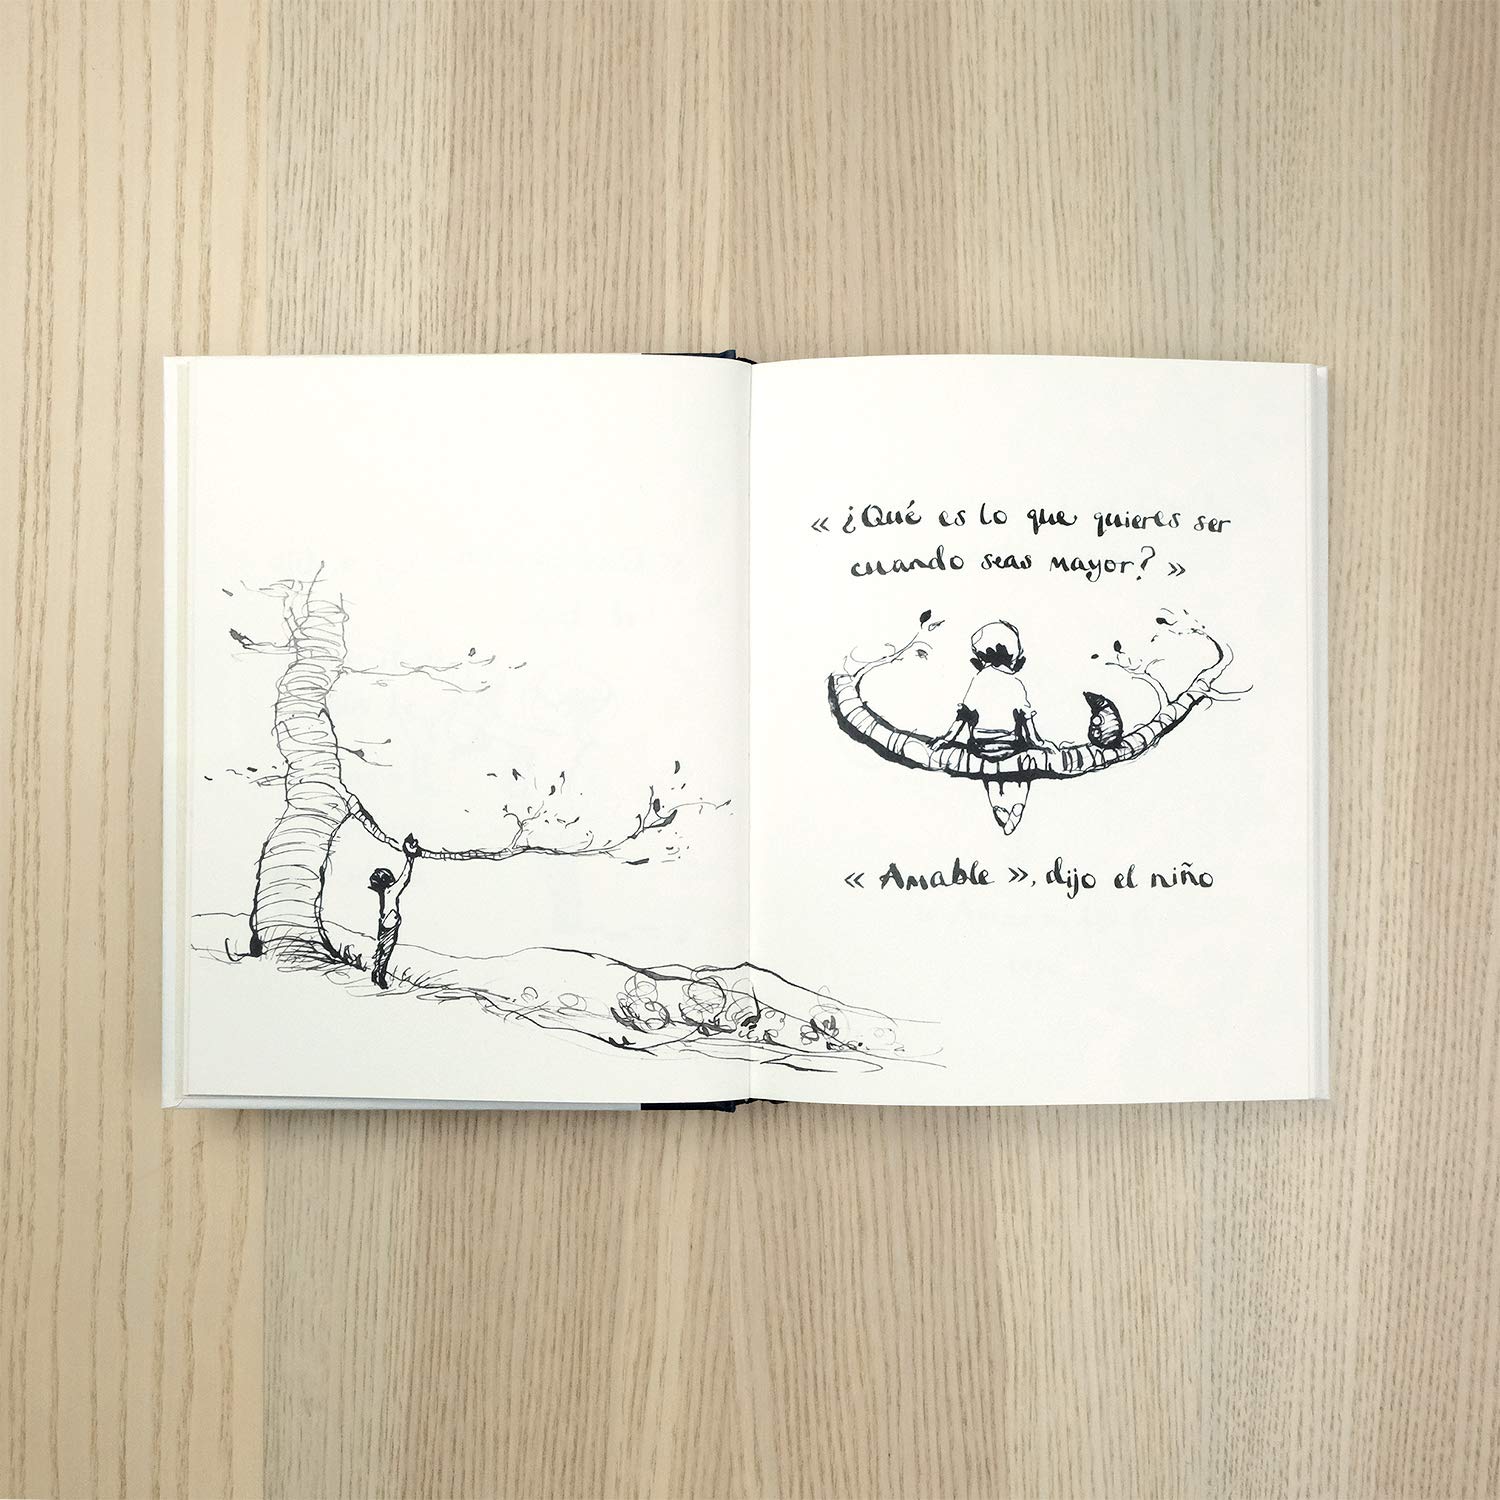 « ¿Qué es lo que quieres ser
cuando seas mayor? »
« Amable », dijo el niño